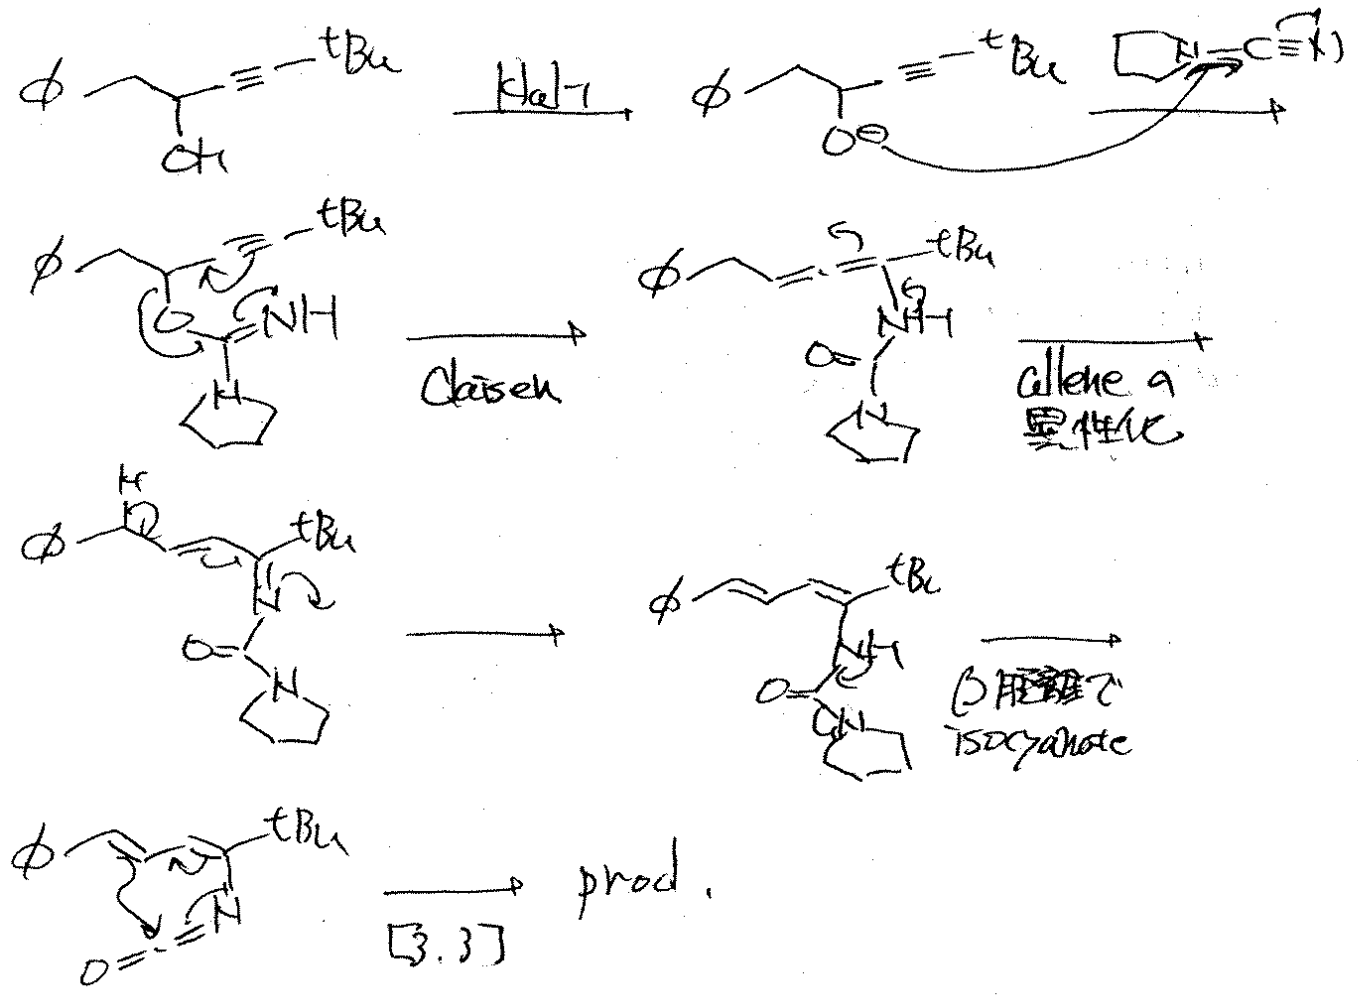 φ tBu OH
NaH
φ tBu O⊖
N C≡N
φ tBu O NH N
Claisen
φ tBu NH O N
allene の
異性化
H φ tBu N O N
φ tBu NH O N
β脱離で
isocyanate
φ tBu N O
[3.3]
prod.